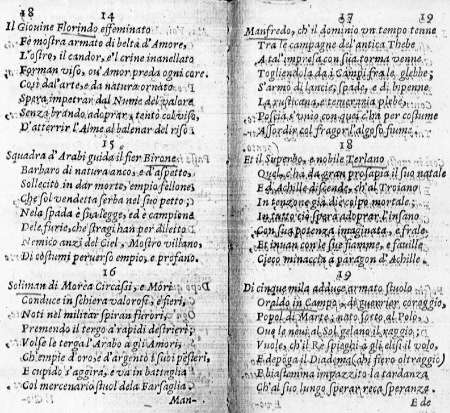 18
14
Il Giovine Florindo effeminato
Fè mostra armato di beltà d'Amore,
L'ostro, il candor, e'l crine inanellato
Forman viso, ou' Amor preda ogni core.
Così dal'arte, e da natura ornato
Spera impetrar dal Nume del valore
Senza brando adoprar, tento col viso,
D'atterrir l'Alme al balenar del riso
15
Squadra d'Arabi guida il fier Birone
Barbaro di natura anco, e d'aspetto,
Sollecito in dar morte, empio fellone
Che sol vendetta serba nel suo petto;
Ne la spada è sua legge, ed è campione
De le furie, che stragi han per diletto
Nemico anzi del Ciel, Mostro villano,
Di costumi peruerso empio, e profano.
16
Soliman di Morèa Circassi, e Mori
Conduce in schiera valorosi, e fieri,
Noti nel militar spiran furori,
Premendo il tergo a' rapidi destrieri;
Volse le terga l'Arabo a gli Amori,
Ch'empie d'oro, e d'argento i suoi pensieri,
E cupido s'aggira, e va in battaglia
Col mercenario stuol de la Farsaglia
Man-
17
19
Manfredo, ch'il dominio un tempo tenne
Tra le campagne del'antica Thebe
A tal'impresa con sua torma venne
Togliendola da i Campi fra le glebbe;
S'armò di lancie, spade, e di bipenne
La rusticana, e temeraria plebe,
Poscia s'unio con quei c'ha per costume
Assordir col fragor l'algoso fiume.
18
Et il Superbo, e nobile Terlano
Quel, c'ha da gran prosapia il suo natale
E d'Achille discende, ch'al Troiano
In tenzone già diè colpo mortale;
In tutto ciò spera adoprar l'insano
Con sua potenza imaginata, e frale,
Et inuan con le sue fiamme, e fauille
Cieco minaccia a paragon d'Achille.
19
Di cinque mila adduce armato stuolo
Oraldo in Campo, di guerrier coraggio,
Popol di Marge; nato sotto al Polo,
Oue le neui al Sol gelano il raggio;
Vuole, ch'il Re spieghi à gli elisi il volo,
E depoga il Diadema (ahi fiero oltraggio)
E biastema impazzito la tardanza
Ch'al suo lungo sperar reca speranza.
E de